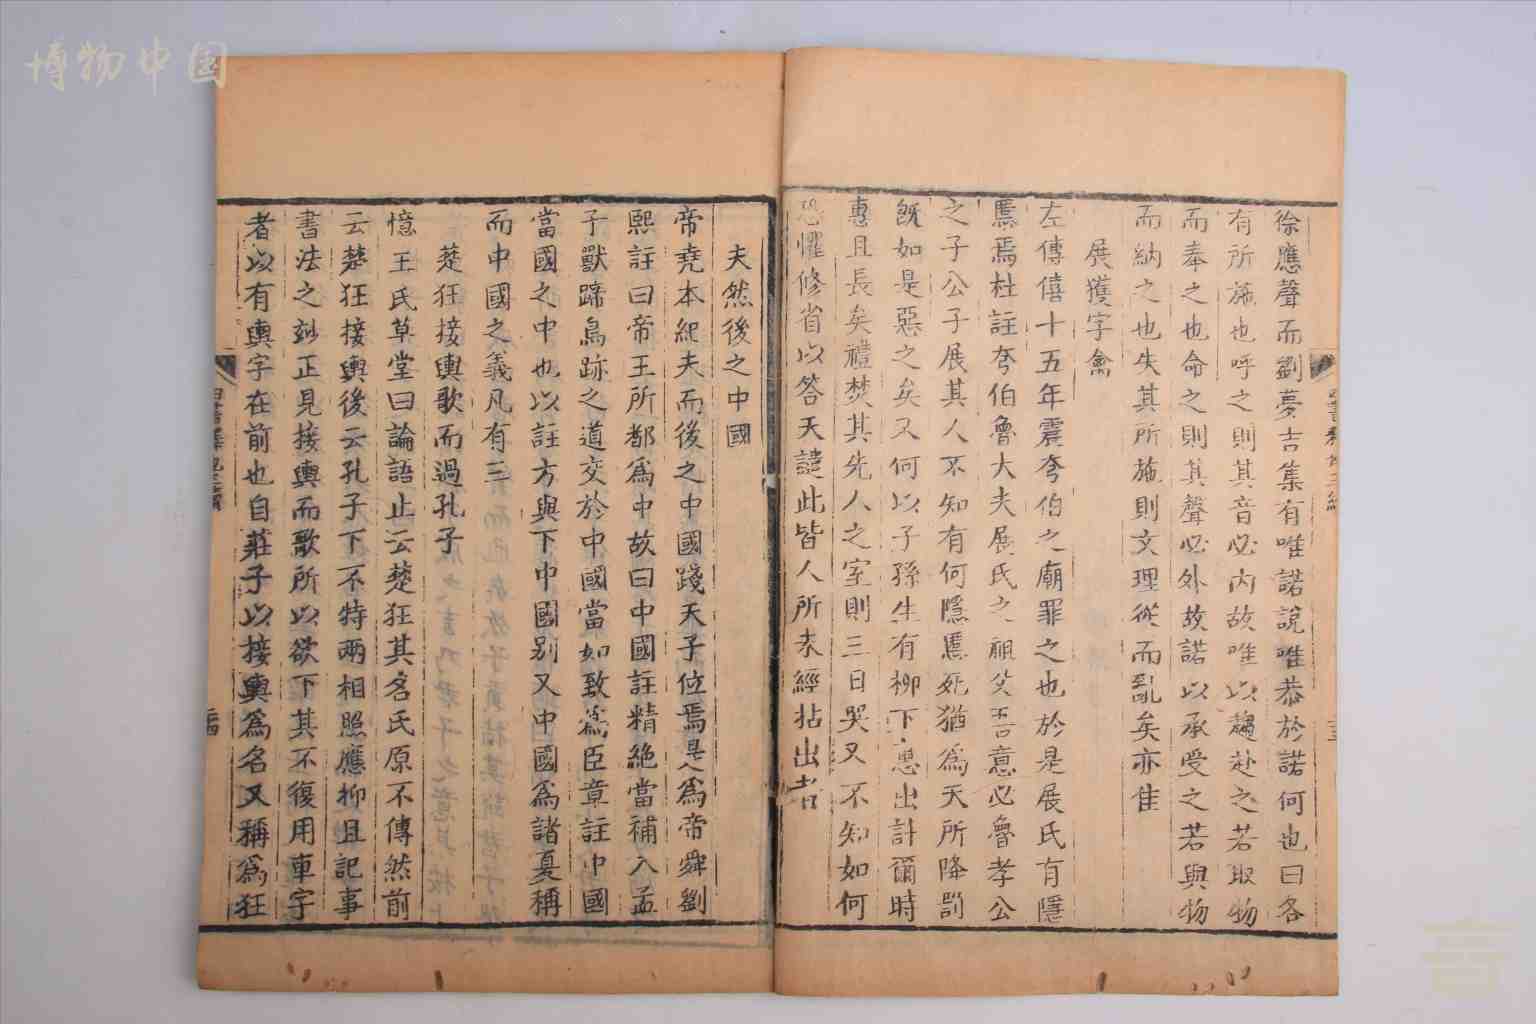 博物中国
徐應聲而劉夢吉集有唯諾說唯恭於諾何也曰各
有所施也呼之則其音必内故唯以趨赴之若取物
而奉之也命之則其聲必外故諾以承受之若與物
而納之也失其所施則文理從而亂矣亦佳
展獲字禽
左傳僖十五年震夸伯之廟罪之也於是展氏有隱
慝焉杜註夸伯魯大夫展氏之祖父吾意必魯孝公
之子公子展其人不知有何隱慝死猶為天所降罰
既如是惡之矣又何以子孫生有柳下惠出計爾時
惠且長矣禮焚其先人之室則三日哭又不知如何
恐懼修省以答天譴此皆人所未經拈出者
夫然後之中國
帝堯本紀夫而後之中國踐天子位焉是為帝舜劉
熙註曰帝王所都為中故曰中國註精絶當補入孟
子獸蹄鳥跡之道交於中國當如致為臣章註中國
當國之中也以註方與下中國别又中國為諸夏稱
而中國之義凡有三
楚狂接輿歌而過孔子
憶王氏草堂曰論語止云楚狂其名氏原不傳然前
云楚狂接輿後云孔子下不特兩相照應抑且記事
書法之妙正見接輿而歌所以欲下其不復用車字
者以有輿字在前也自莊子以接輿為名又稱為狂
二十四